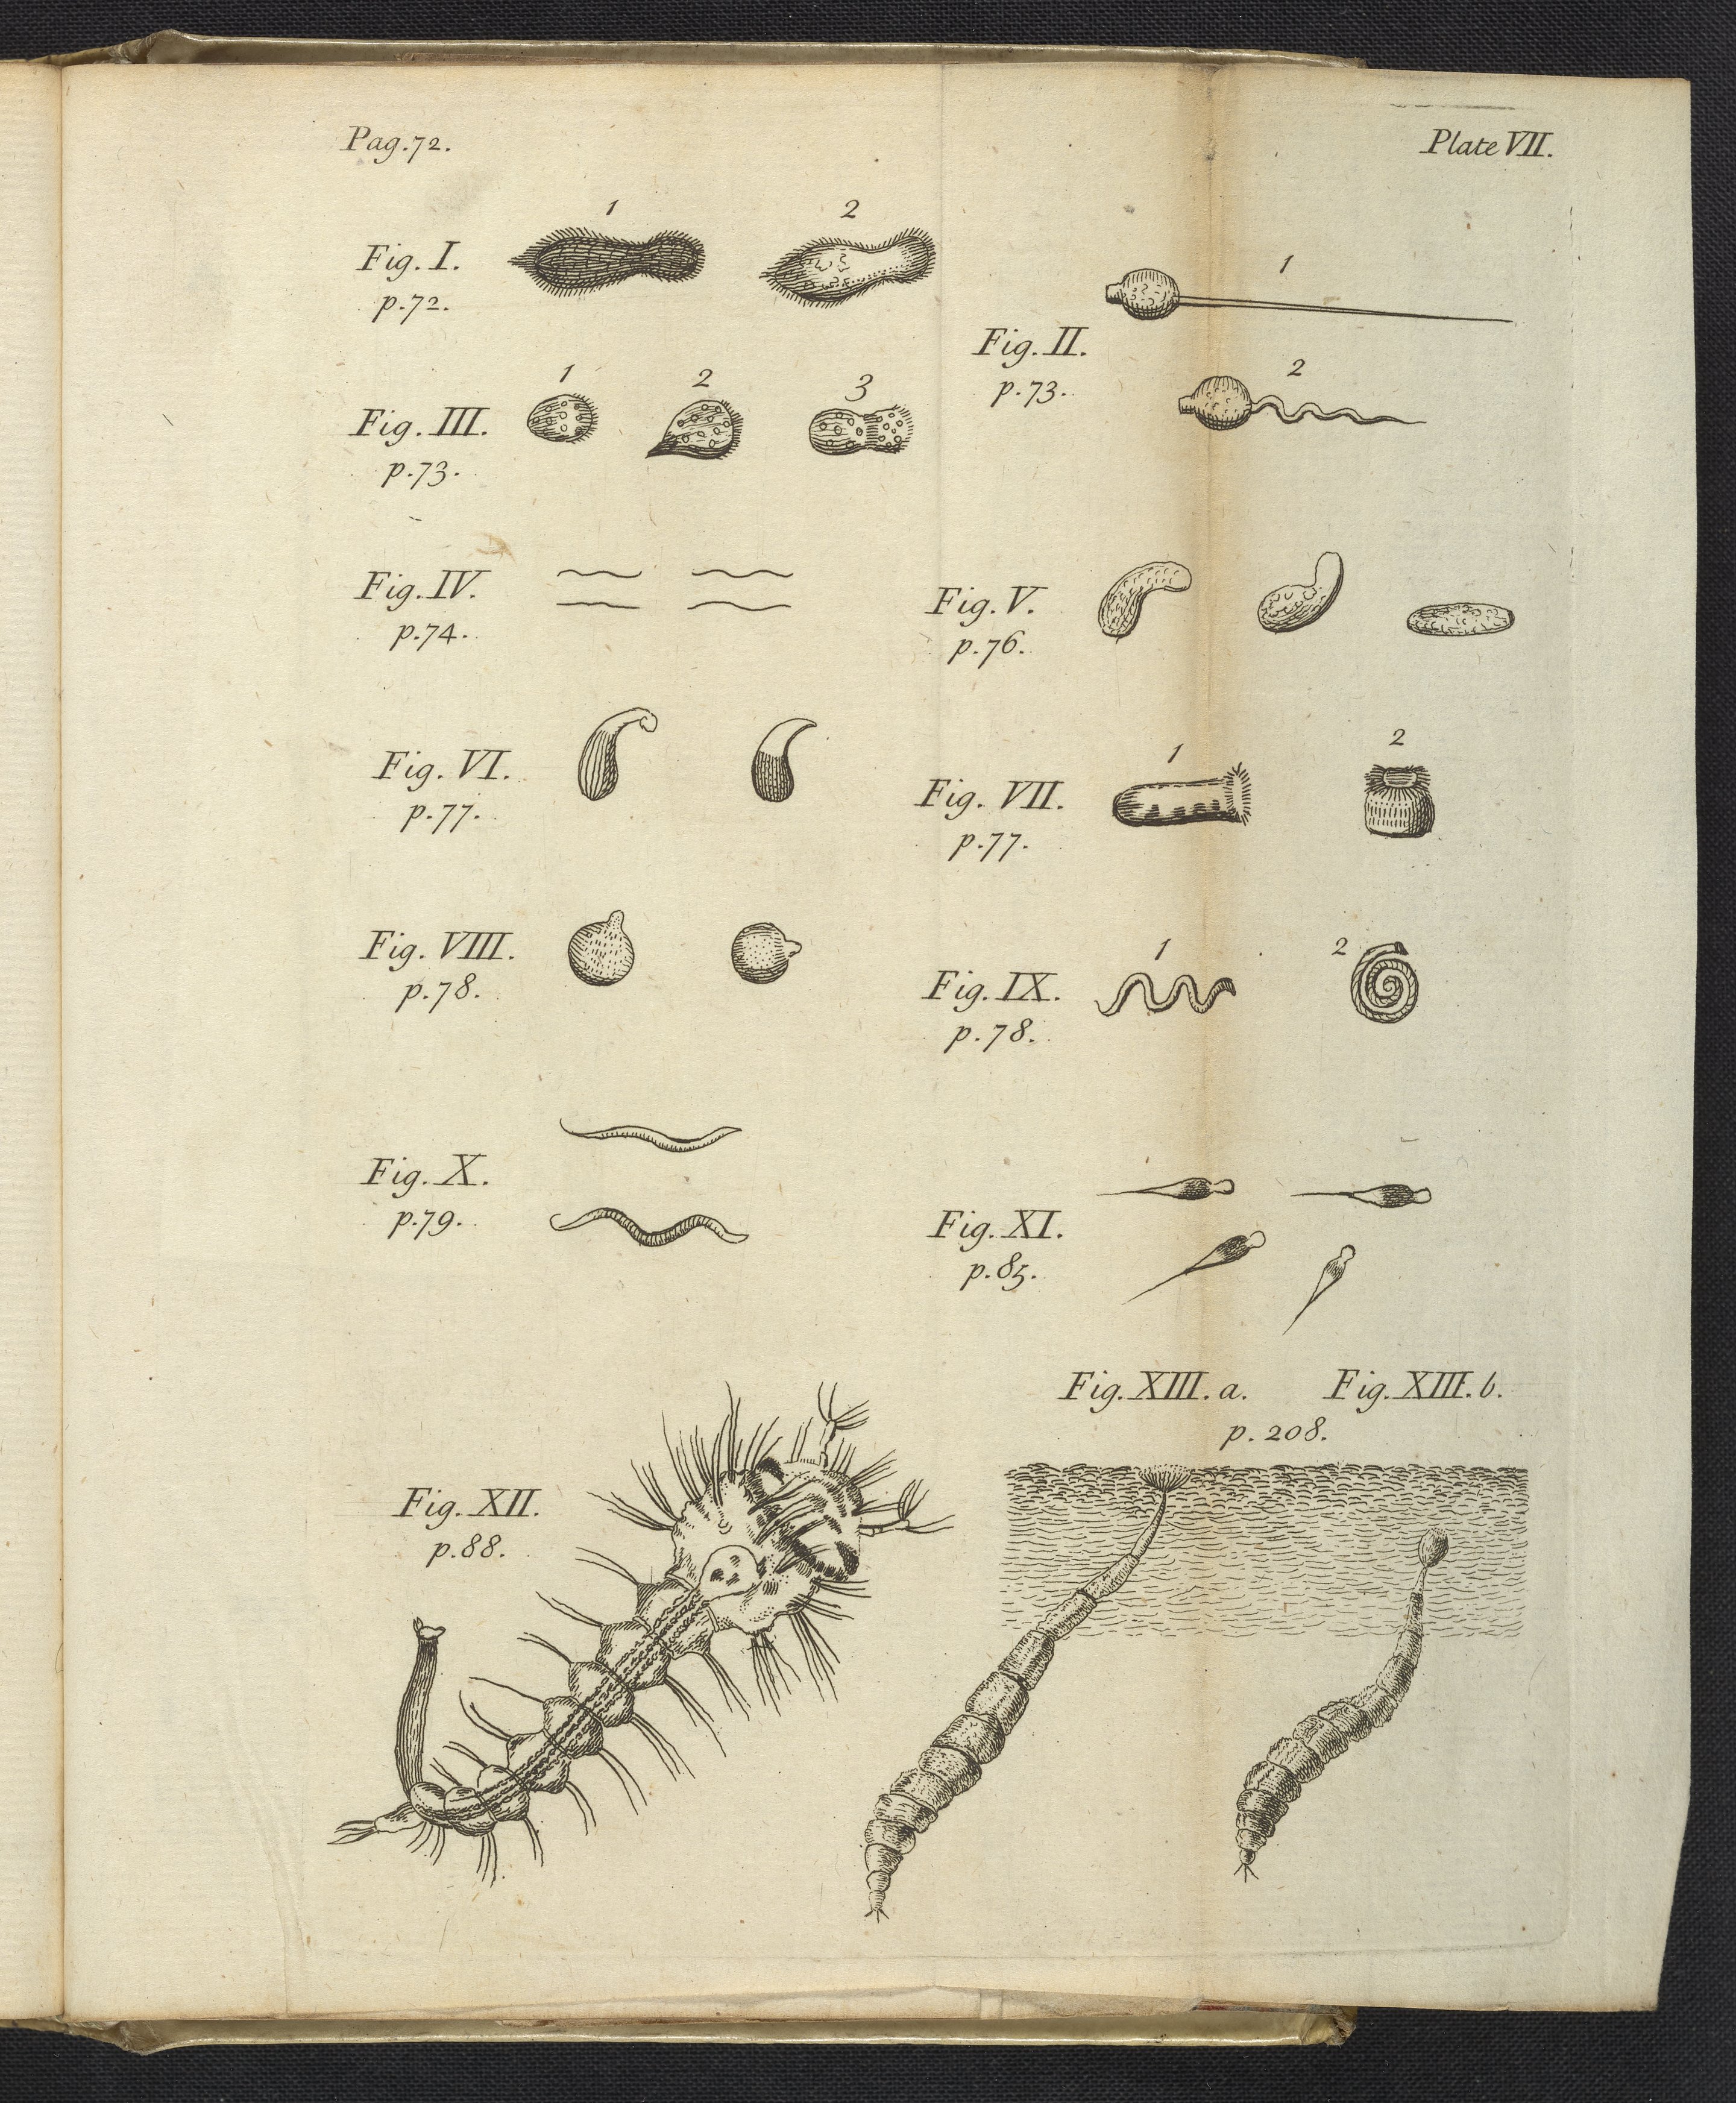 Pag. 72.
Plate VII.
1
2
Fig. I.
p. 72.
1
Fig. II.
p. 73.
2
1
2
3
Fig. III.
p. 73.
Fig. IV.
p. 74.
Fig. V.
p. 76.
Fig. VI.
p. 77.
1
2
Fig. VII.
p. 77.
Fig. VIII.
p. 78.
1
2
Fig. IX.
p. 78.
Fig. X.
p. 79.
Fig. XI.
p. 85.
Fig. XII.
p. 88.
Fig. XIII. a.
Fig. XIII. b.
p. 208.